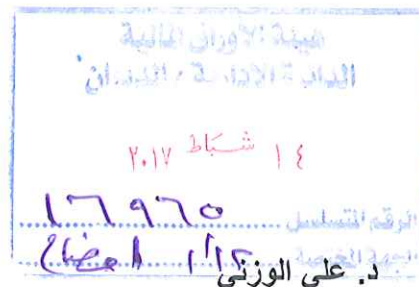 هيئة الأوراق المالية
الدائرة الإدارية / الديوان
١٤ شباط ٢٠١٧
الرقم المتسلسل ١٦٩٦٥
الجهة المختصة ١١٢ افصاح
د. علي الوزني